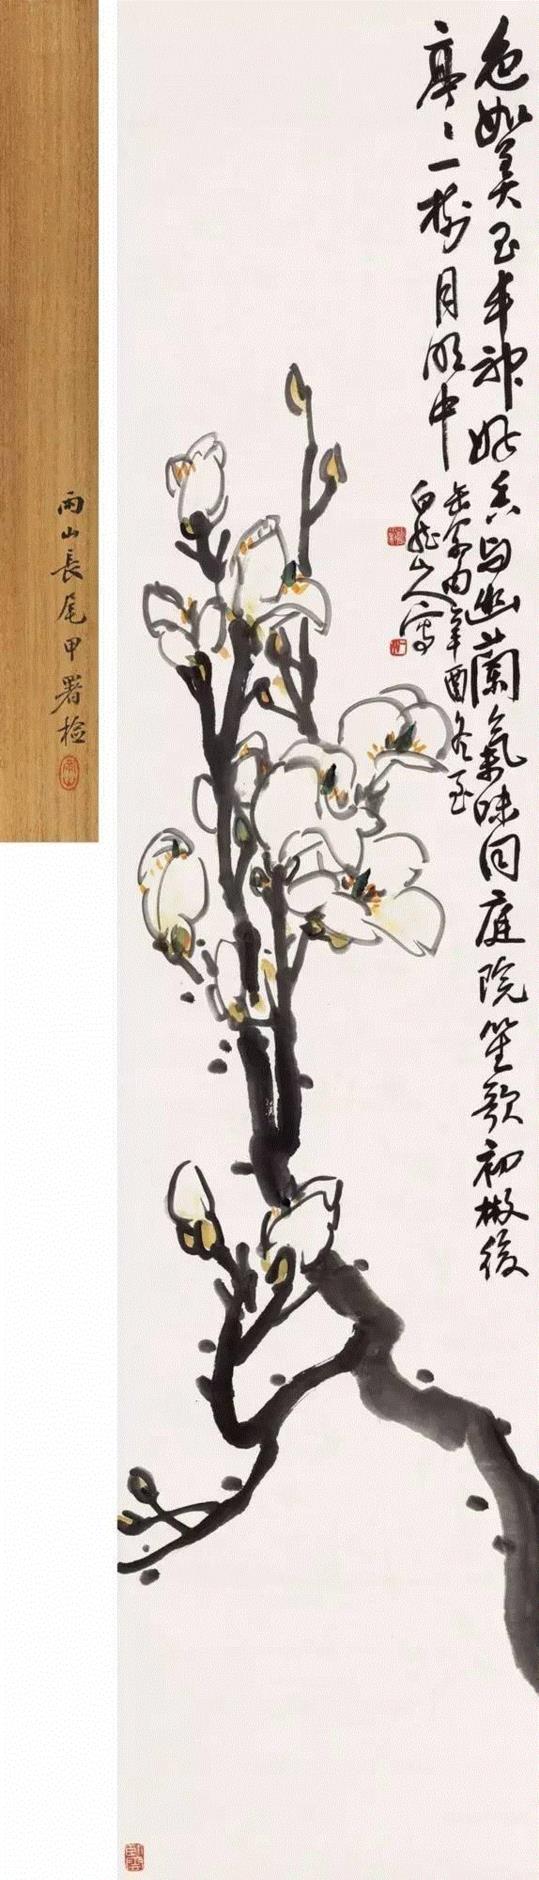 色如美玉丰神好香与幽蘭氣味同庭院笙歌初散後
亭〻一樹月明中
缶翁内辛酉冬至
白龍山人寫
雨山長尾甲署檢